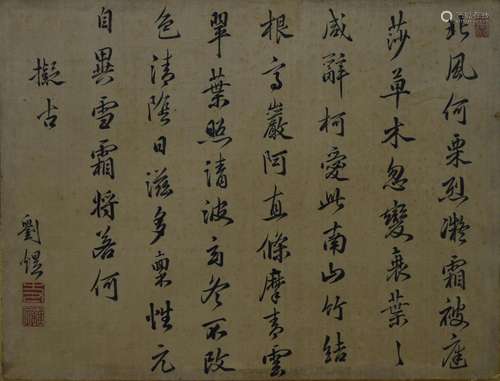 北風何栗烈凝霜被庭
莎草木忽變衰葉〻
咸辭柯愛此南山竹結
根高巖阿直條摩青雲
翠葉照清波玄冬不改
色清陰日滋多稟性元
自異雪霜將若何
擬古
劉愰